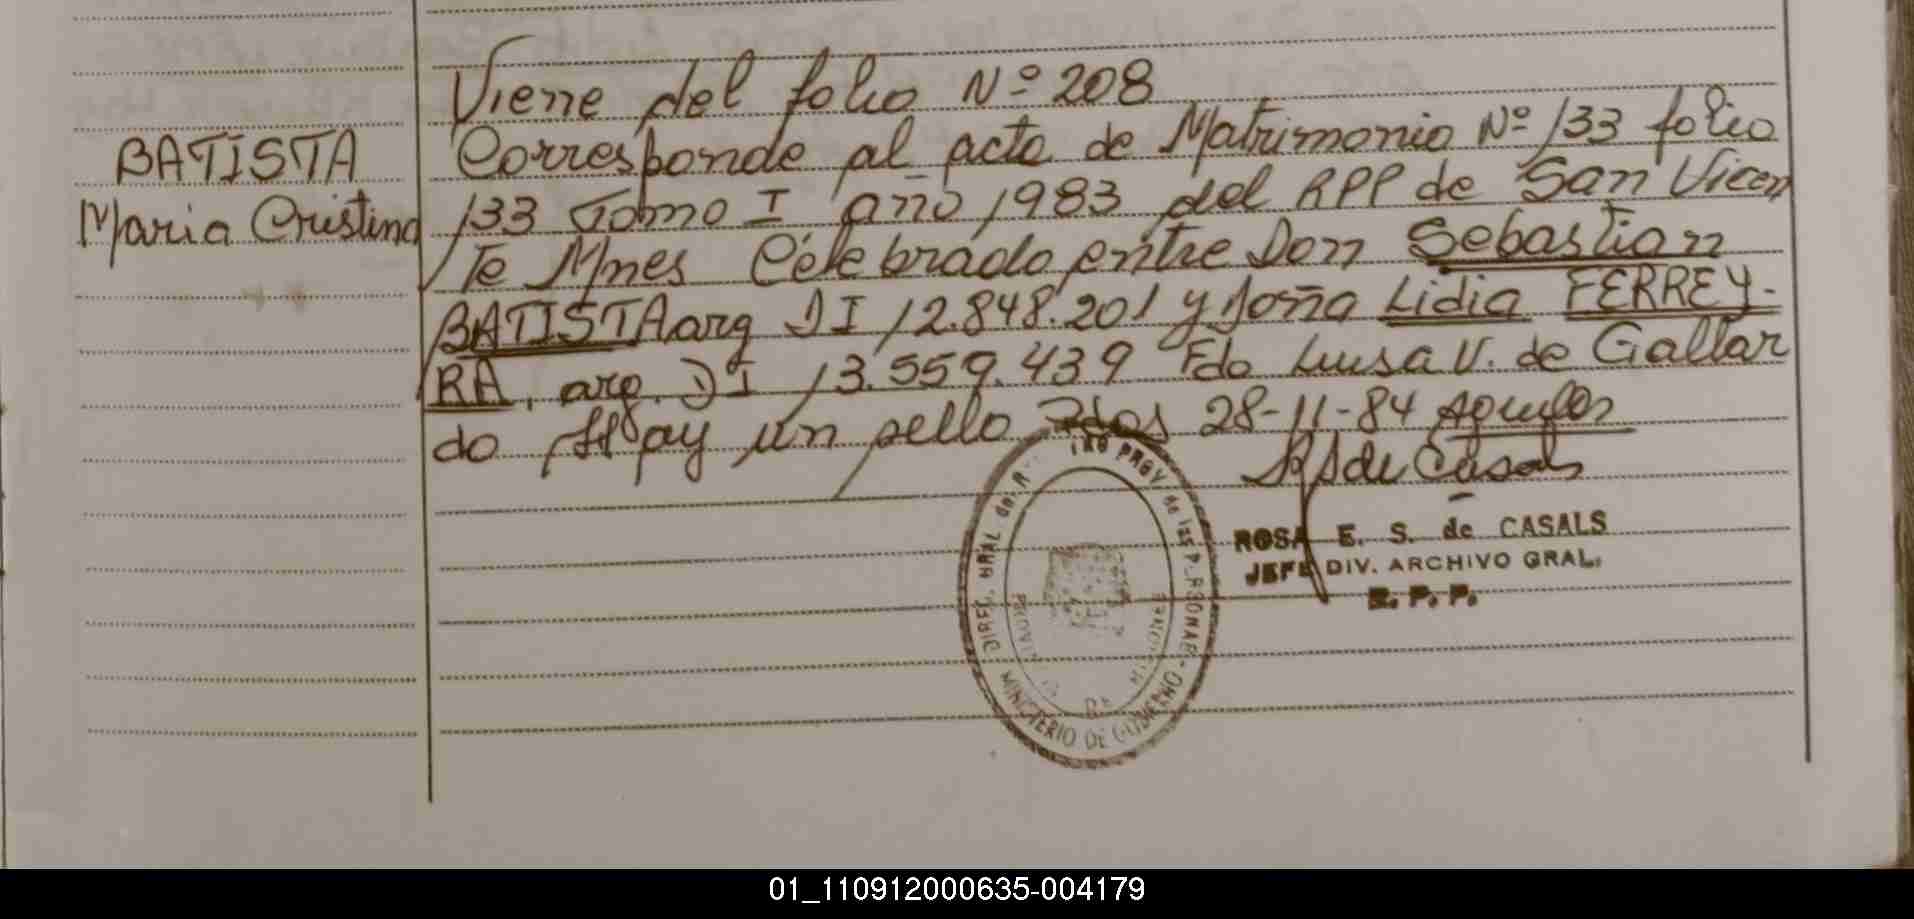 Viene del folio Nº 208
BATISTA
Maria Cristina
Corresponde al acta de Matrimonio Nº 133 folio
133 Tomo I año 1983 del RPP de San Vicen
te Mnes Celebrado entre Don Sebastian
BATISTA arg DI 12.848.201 y doña Lidia FERREY-
RA, arg. DI 13.559.439 Fdo Luisa V. de Gallar
do Hay un sello Pdas 28-11-84
RS de Casals
ROSA E. S. de CASALS
JEFE DIV. ARCHIVO GRAL.
R. P. P.
DIREC. GRAL de PROV de las PERSONAS - MINISTERIO DE GOBIERNO
01_110912000635-004179